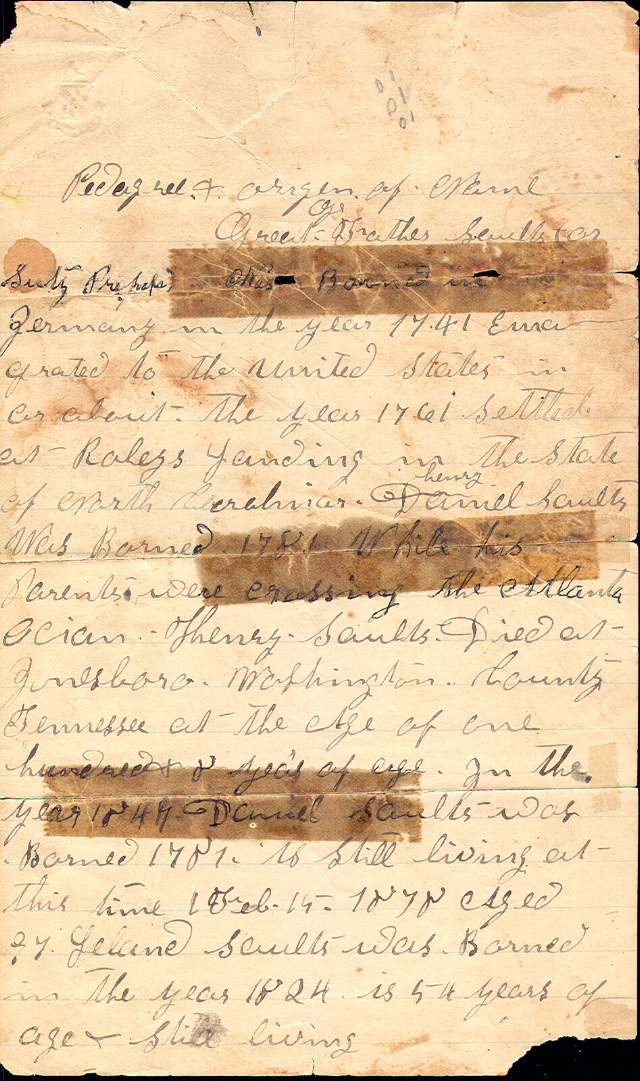 01
01
01
Pedagree. & origen. of. Name
Of
Great-Father Saults or
Suty Borned in
Germany in the year 1741 Ema
grated to the United States in
or about- the year 1761 Settled
at- Roleys Landing in the State
henry
of North Carolinar. Daniel Saults
Was Borned 1781 While his
Parents were crossing the Atlanta
Ocian - Thenry- Saults. Died at-
Jonesboro. Washington. County
Tennessee at- the Age of one
hundred & 8 years of age. In the
year Daniel Saults was
Borned 1781. is Still living at-
this time Feb. 15- 1878 Aged
97. Leland Saults was. Borned
in the year 1824 is 54 years of
age & Still living